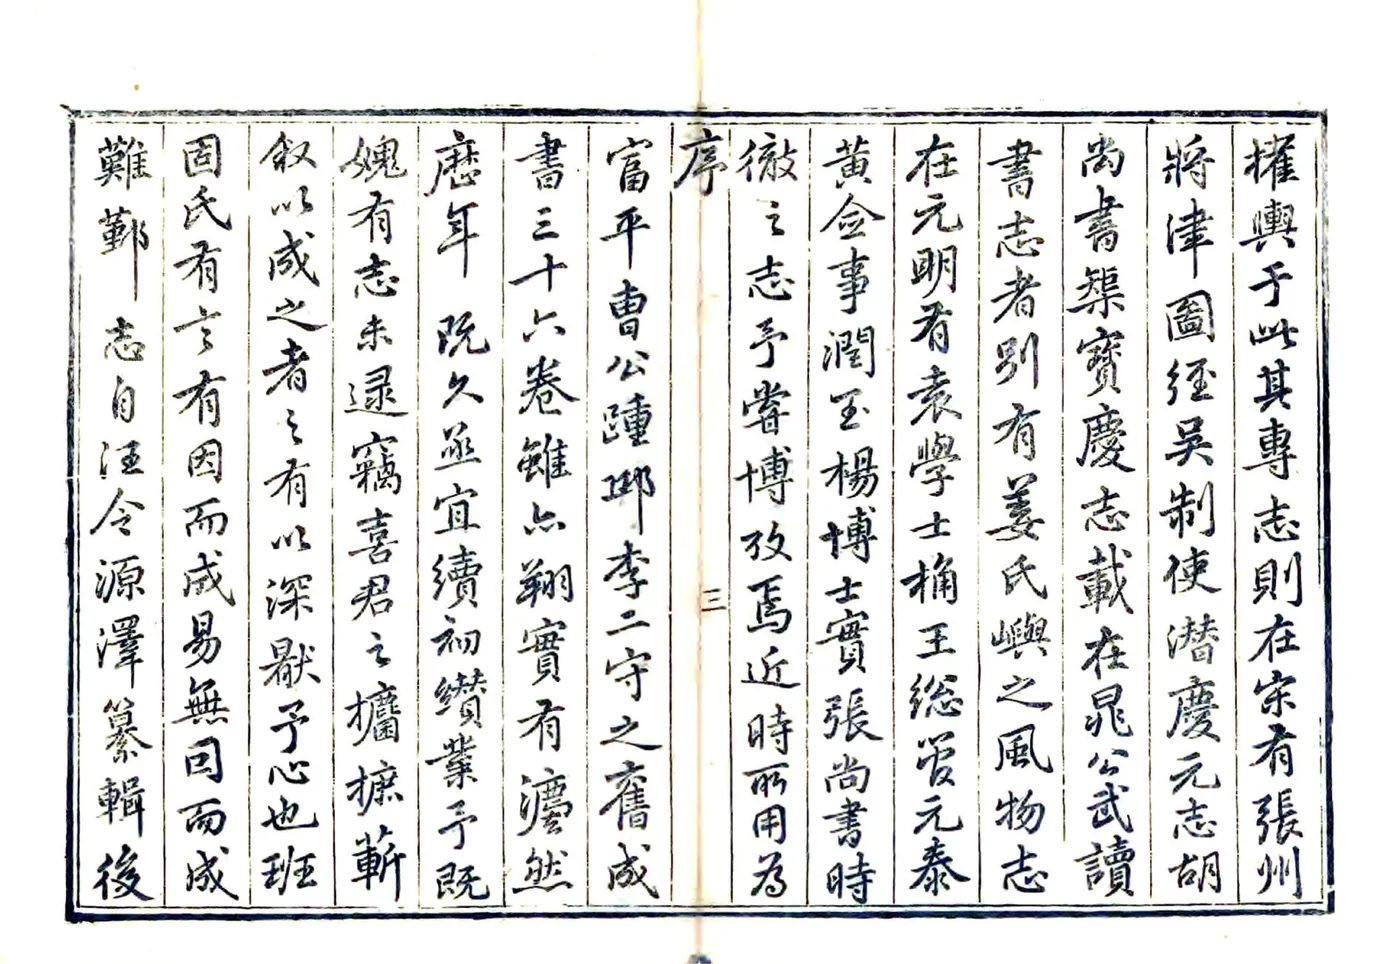 權輿于此其專志則在宋有張州
將津圖經吳制使潛慶元志胡
尚書榘寶慶志載在晁公武讀
書志者別有姜氏嶼之風物志
在元明有袁學士桷王總管元泰
黃僉事潤玉楊博士實張尚書時
徹之志予嘗博攷焉近時所用為
序
三
富平曹公踵邱李二守之舊成
書三十六卷雖亦翔實有灋然
歷年既久亟宜續初纘業予既
媿有志未逮竊喜君之攟摭蘄
敘以成之者之有以深厭予心也班
固氏有言有因而成易無因而成
難鄞志自汪令源澤纂輯後